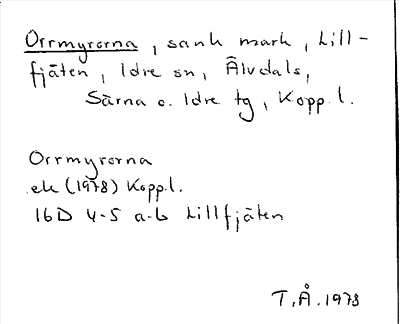 Orrmyrorna, sank mark, Lill-
fjäten, Idre sn, Älvdals,
Särna o. Idre tg, Kopp.l.
Orrmyrorna
ek (1978) Kopp.l.
16D 4-5 a-b Lillfjäten
T.Å. 1978